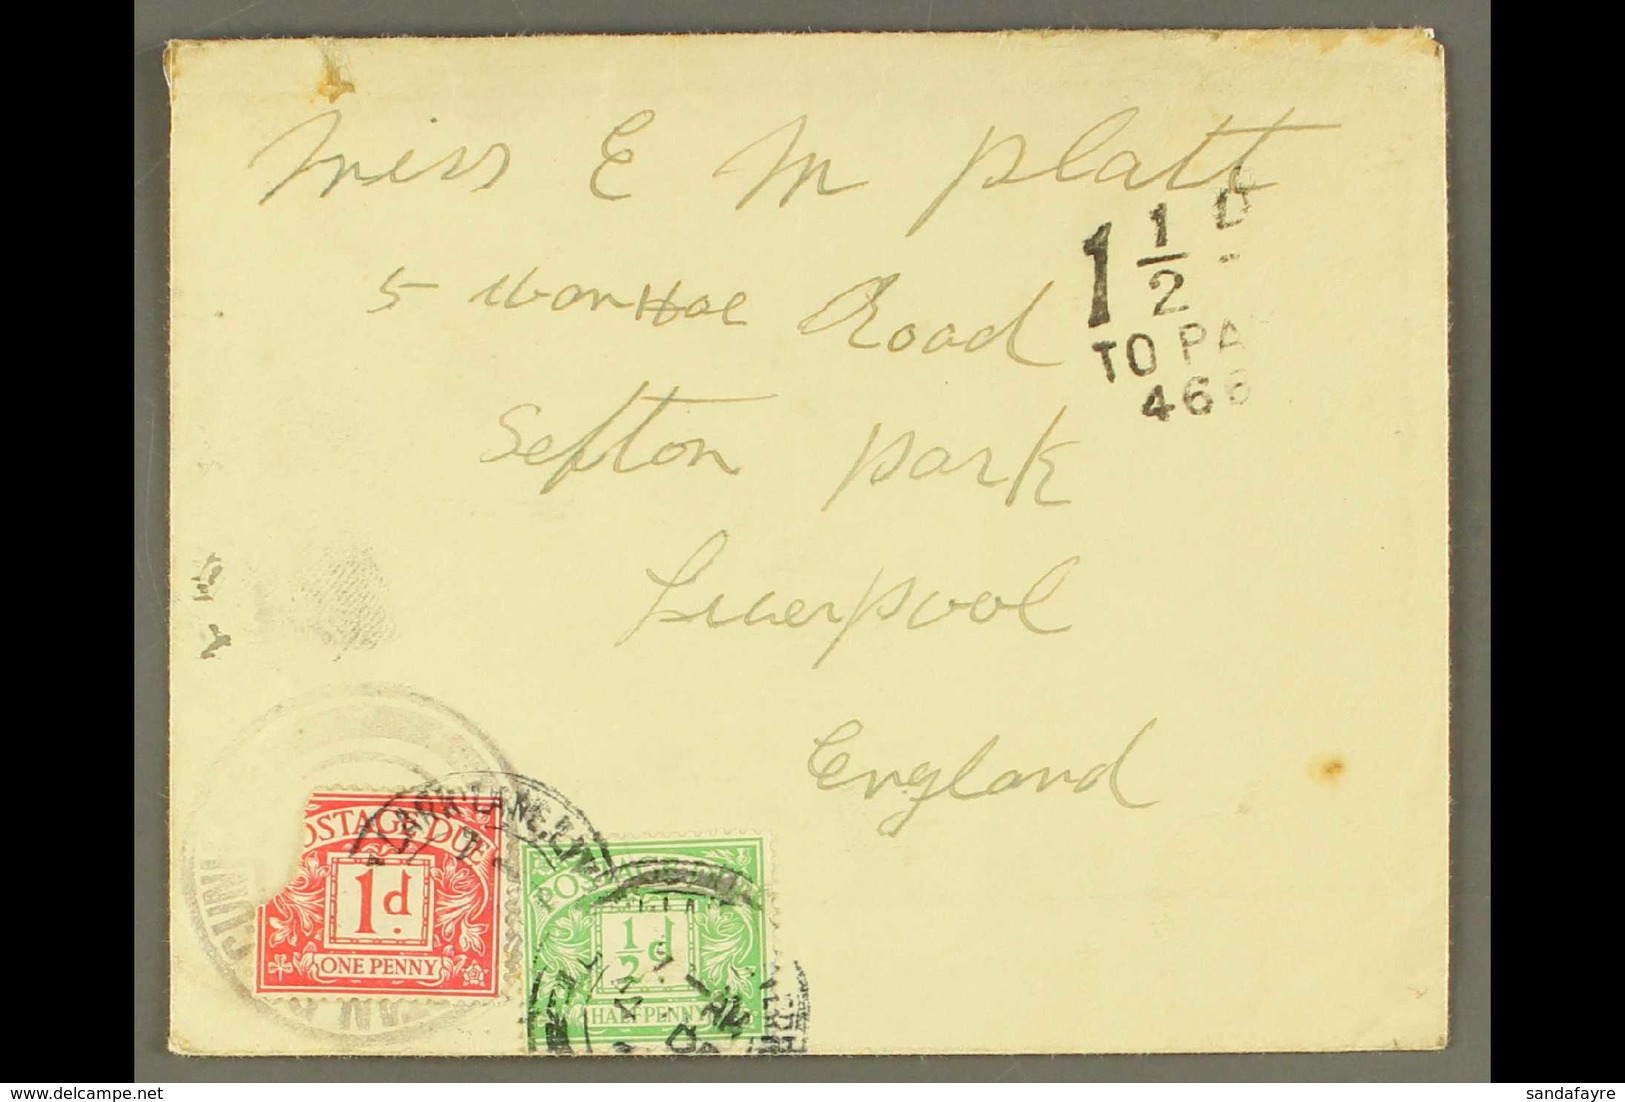 Miss E M Platt
5 Ivanhoe Road
Sefton Park
Liverpool
England
1 1/2 D
TO PA
466
POSTAGE DUE
1d.
ONE PENNY
1/2 d
HALFPENNY
sandafayre